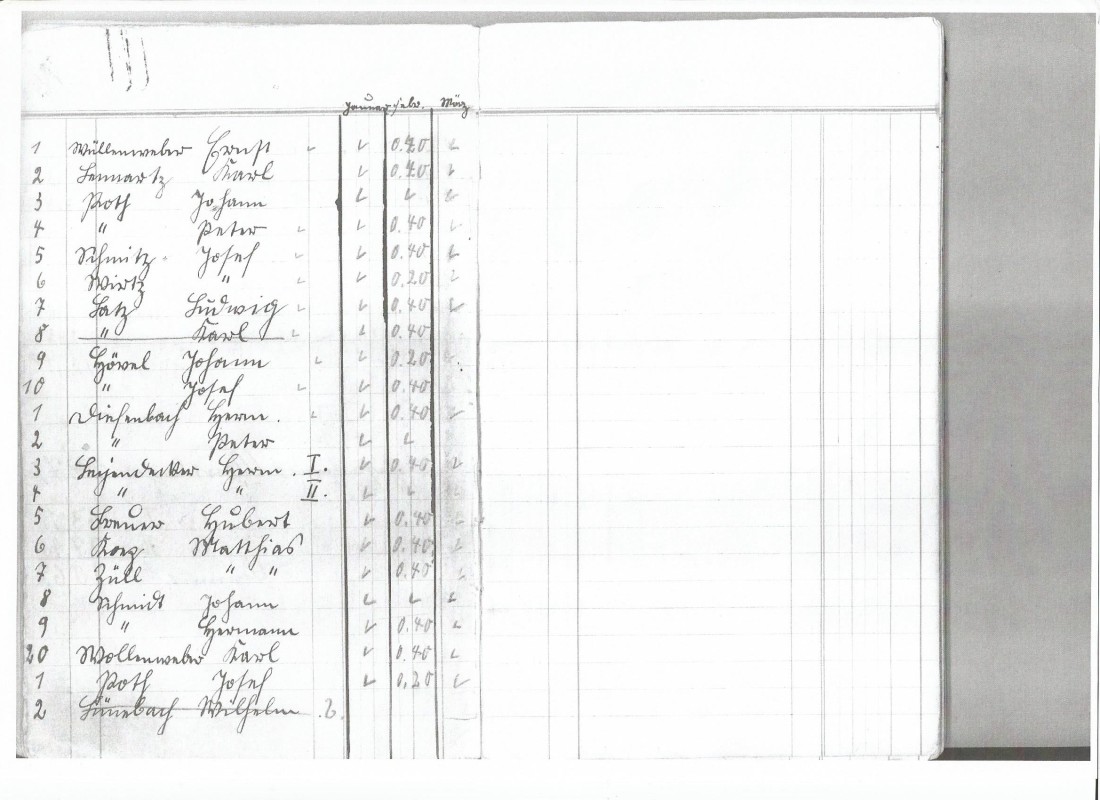 III
Januar Febr. März
1 Wüllenweber Ernst ✓ ✓ 0.40 ✓
2 Lennartz Karl ✓ 0.40 ✓
3 Roth Johann ✓ ✓ ✓
4 " Peter ✓ ✓ 0.40 ✓
5 Schmitz Josef ✓ ✓ 0.40 ✓
6 Wirtz " ✓ ✓ 0.20 ✓
7 Latz Ludwig ✓ ✓ 0.40 ✓
8 " Karl ✓ ✓ 0.40
9 Hövel Johann ✓ ✓ 0.20 ✓
10 " Josef ✓ ✓ 0.40 ✓
1 Diefenbach Herm. ✓ ✓ 0.40 ✓
2 " Peter ✓ ✓
3 Leyendecker Herm. I. ✓ 0.40 ✓
4 " " II. ✓ ✓
5 Breuer Hubert ✓ 0.40 ✓
6 Matthias ✓ 0.40 ✓
7 Züll " " ✓ 0.40 ✓
8 Schmidt Johann ✓ ✓ ✓
9 " Hermann ✓ 0.40 ✓
20 Wollenweber Karl ✓ 0.40 ✓
1 Roth Josef ✓ 0.20 ✓
2 Lünebach Wilhelm